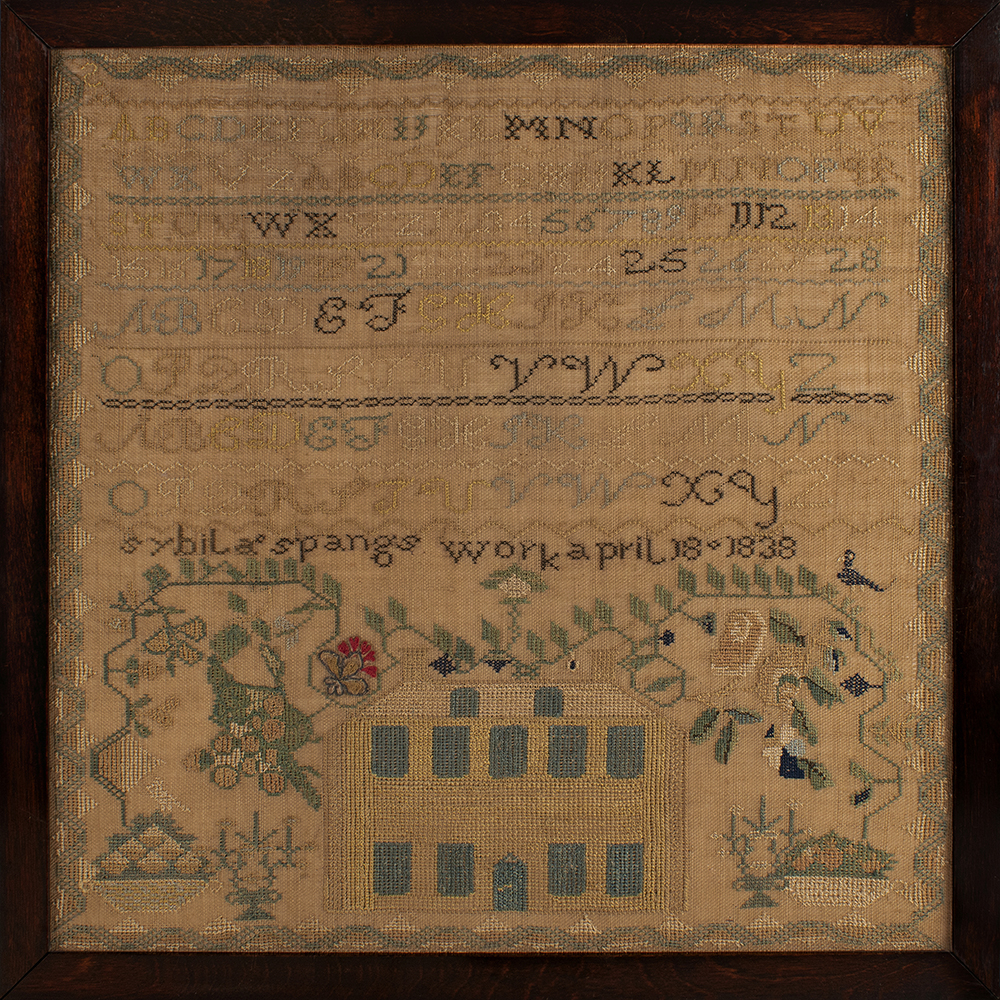 A B C D E F G H I J K L M N O P Q R S T U V
W X Y Z A B C D E F G H I J K L M N O P Q R
S T U V W X Y Z 1 2 3 4 5 6 7 8 9 10 11 12 13 14
15 16 17 18 19 20 21 22 23 24 25 26 27 28
A B C D E F G H I K L M N
O P Q R S T U V W X Y Z
A B C D E F G H I K L M N
O P Q R S T U V W X Y Z
sybil a spangs work april 18 1838